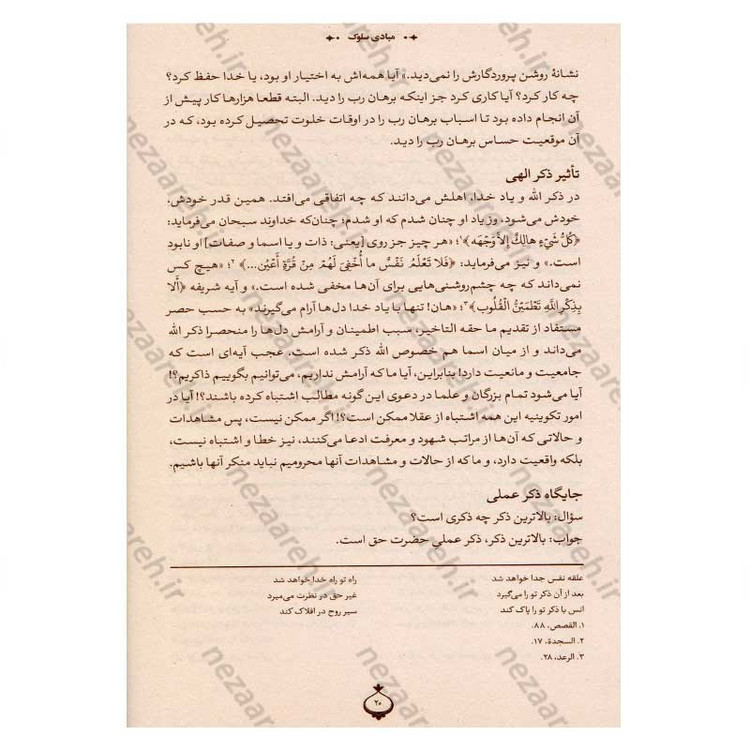 مبادی سلوک
نشانهٔ روشن پروردگارش را نمی‌دید.» آیا همه‌اش به اختیار او بود، یا خدا حفظ کرد؟
چه کار کرد؟ آیا کاری کرد جز اینکه برهان رب را دید. البته قطعا هزارها کار پیش از
آن انجام داده بود تا اسباب برهان رب را در اوقات خلوت تحصیل کرده بود، که در
آن موقعیت حساس برهان رب را دید.
تأثیر ذکر الهی
در ذکر الله و یاد خدا، اهلش می‌دانند که چه اتفاقی می‌افتد. همین قدر خودش،
خودش می‌شود، و زیاد او چنان شدم که او شدم؛ چنان‌که خداوند سبحان می‌فرماید:
﴿كُلُّ شَيْءٍ هالِكٌ إِلاَّ وَجْهَه﴾۱؛ «هر چیز جز روی [یعنی: ذات و یا اسما و صفات] او نابود
است.» و نیز می‌فرماید: ﴿فَلا تَعْلَمُ نَفْسٌ ما أُخْفِيَ لَهُمْ مِنْ قُرَّةِ أَعْيُنٍ...﴾۲؛ «هیچ کس
نمی‌داند که چه چشم‌روشنی‌هایی برای آن‌ها مخفی شده است.» و آیه شریفه ﴿أَلا
بِذِكْرِ اللهِ تَطْمَئِنُّ الْقُلُوب﴾۳؛ «هان! تنها با یاد خدا دل‌ها آرام می‌گیرند» به حسب حصر
مستفاد از تقدیم ما حقه التاخیر، سبب اطمینان و آرامش دل‌ها را منحصرا ذکر الله
می‌داند و از میان اسما هم خصوص الله ذکر شده است. عجب آیه‌ای است که
جامعیت و مانعیت دارد! بنابراین، آیا ما که آرامش نداریم، می‌توانیم بگوییم ذاکریم؟!
آیا می‌شود تمام بزرگان و علما در دعوی این گونه مطالب اشتباه کرده باشند؟! آیا در
امور تکوینیه این همه اشتباه از عقلا ممکن است؟! اگر ممکن نیست، پس مشاهدات
و حالاتی که آن‌ها از مراتب شهود و معرفت ادعا می‌کنند، نیز خطا و اشتباه نیست،
بلکه واقعیت دارد، و ما که از حالات و مشاهدات آنها محرومیم نباید منکر آنها باشیم.
جایگاه ذکر عملی
سؤال: بالاترین ذکر چه ذکری است؟
جواب: بالاترین ذکر، ذکر عملی حضرت حق است.
علقه نفس جدا خواهد شد راه تو راه خدا خواهد شد
بعد از آن ذکر تو را می‌گیرد غیر حق در نظرت می‌میرد
انس با ذکر تو را پاک کند سیر روح در افلاک کند
۱. القصص، ۸۸.
۲. السجدة، ۱۷.
۳. الرعد، ۲۸.
۲۰
nezaareh.ir